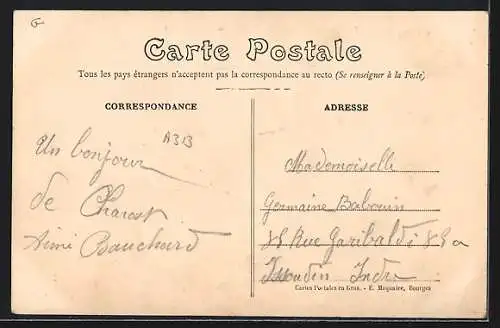 G
Carte Postale
Tous les pays étrangers n'acceptent pas la correspondance au recto (Se renseigner à la Poste)
CORRESPONDANCE
A313
Un bonjour
de Charost
Aimé Bouchard
ADRESSE
Mademoiselle
Germaine
Rue Garibaldi
Issoudun Indre
Cartes Postales en Gros. - E. Maquaire, Bourges